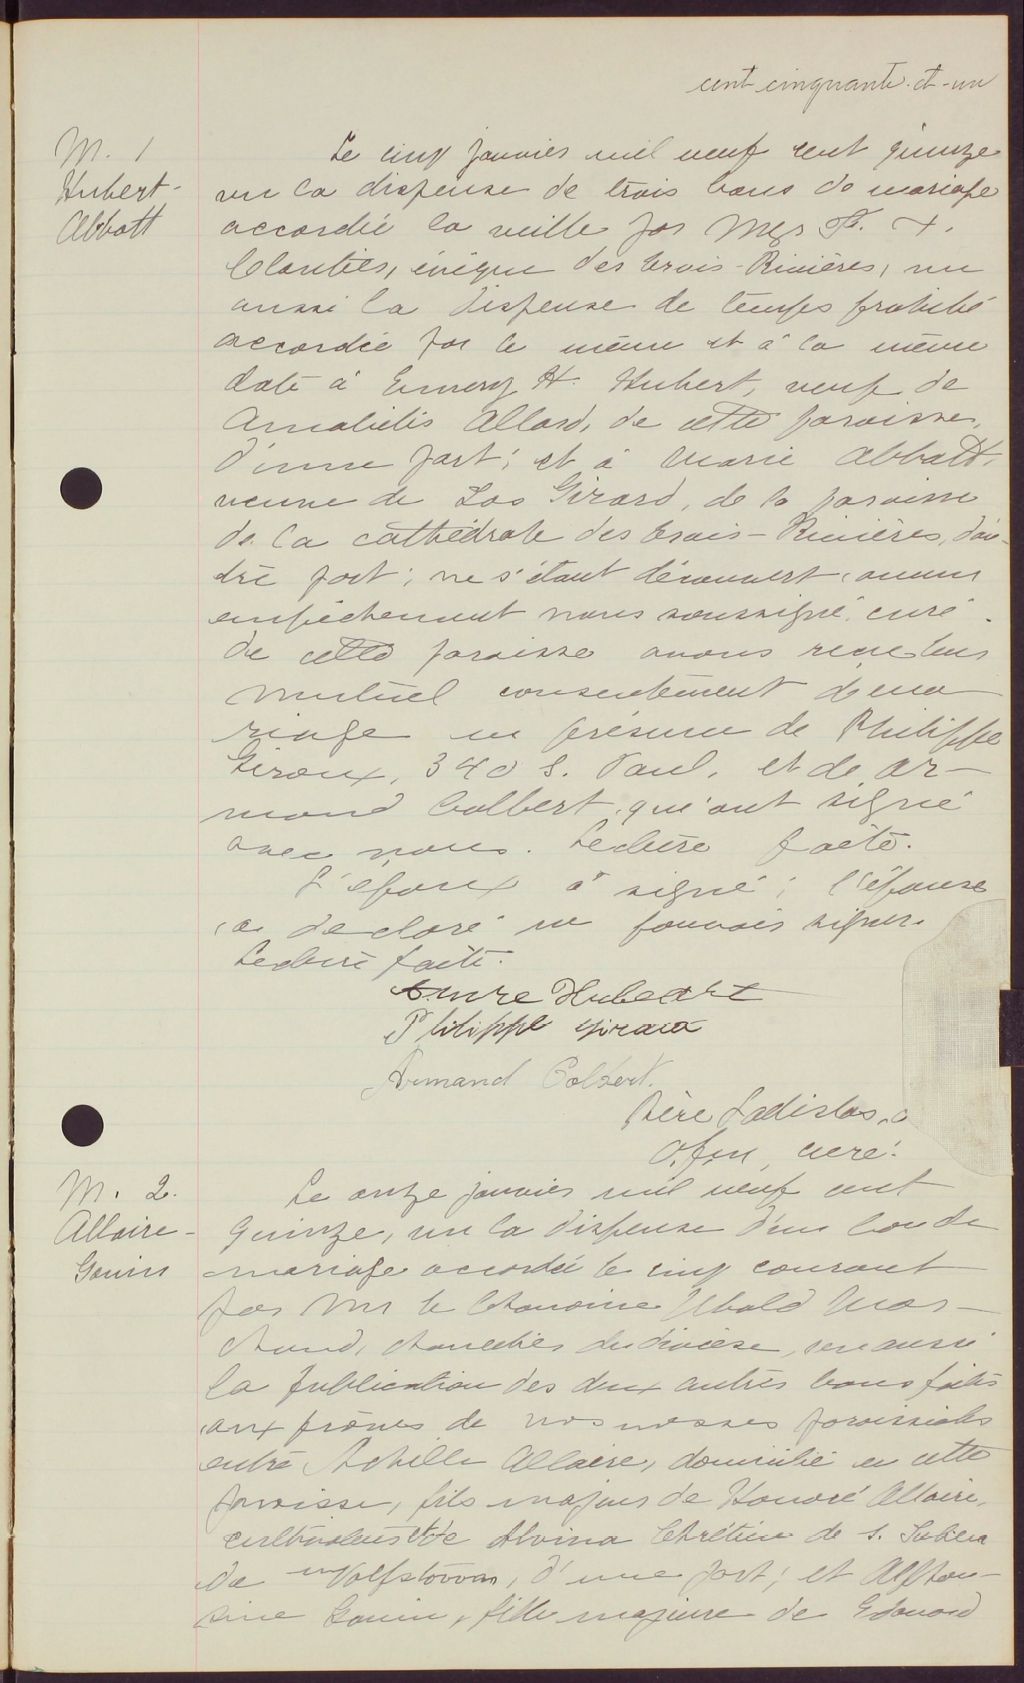 cent cinquante-et-un
M. 1
Hubert-
Abbott
Le cinq janvier mil neuf cent quinze
vu la dispense de trois bans de mariage
accordée la veille par Mgr F. X.
Cloutier, évêque des Trois-Rivières, vu
aussi la dispense de temps prohibé
accordée par le même et à la même
date à Emery H. Hubert, veuf de
Allard, de cette paroisse,
d'une part; et à Marie Abbott,
veuve de Girard, de la paroisse
de la cathédrale des Trois-Rivières, d'au-
tre part; ne s'étant découvert aucun
empêchement nous soussigné curé
de cette paroisse avons reçu leur
mutuel consentement de ma-
riage en présence de Philippe
Giroux, 340 S. Paul, et de Ar-
mand Colbert, qui ont signé
avec nous. Lecture faite.
L'époux a signé; l'épouse
a déclaré ne pouvoir signer.
Lecture faite.
Hubert
Philippe Giroux
Armand Colbert.
Père Ladislas,
o.f.m, curé.
M. 2.
Allaire-
Gouin
Le onze janvier mil neuf cent
quinze, vu la dispense d'un ban de
mariage accordée le cinq courant
par Mr le Chanoine Ubald Mar-
chand, chancelier du diocèse, vu aussi
la publication des deux autres bans faite
aux prônes de nos messes paroissiales
entre Achille Allaire, domicilié en cette
paroisse, fils majeur de Honoré Allaire,
cultivateur et de Alvina Chrétien de S. Julien
de Wolfstown, d'une part; et Alphon-
sine Gouin, fille majeure de Edouard